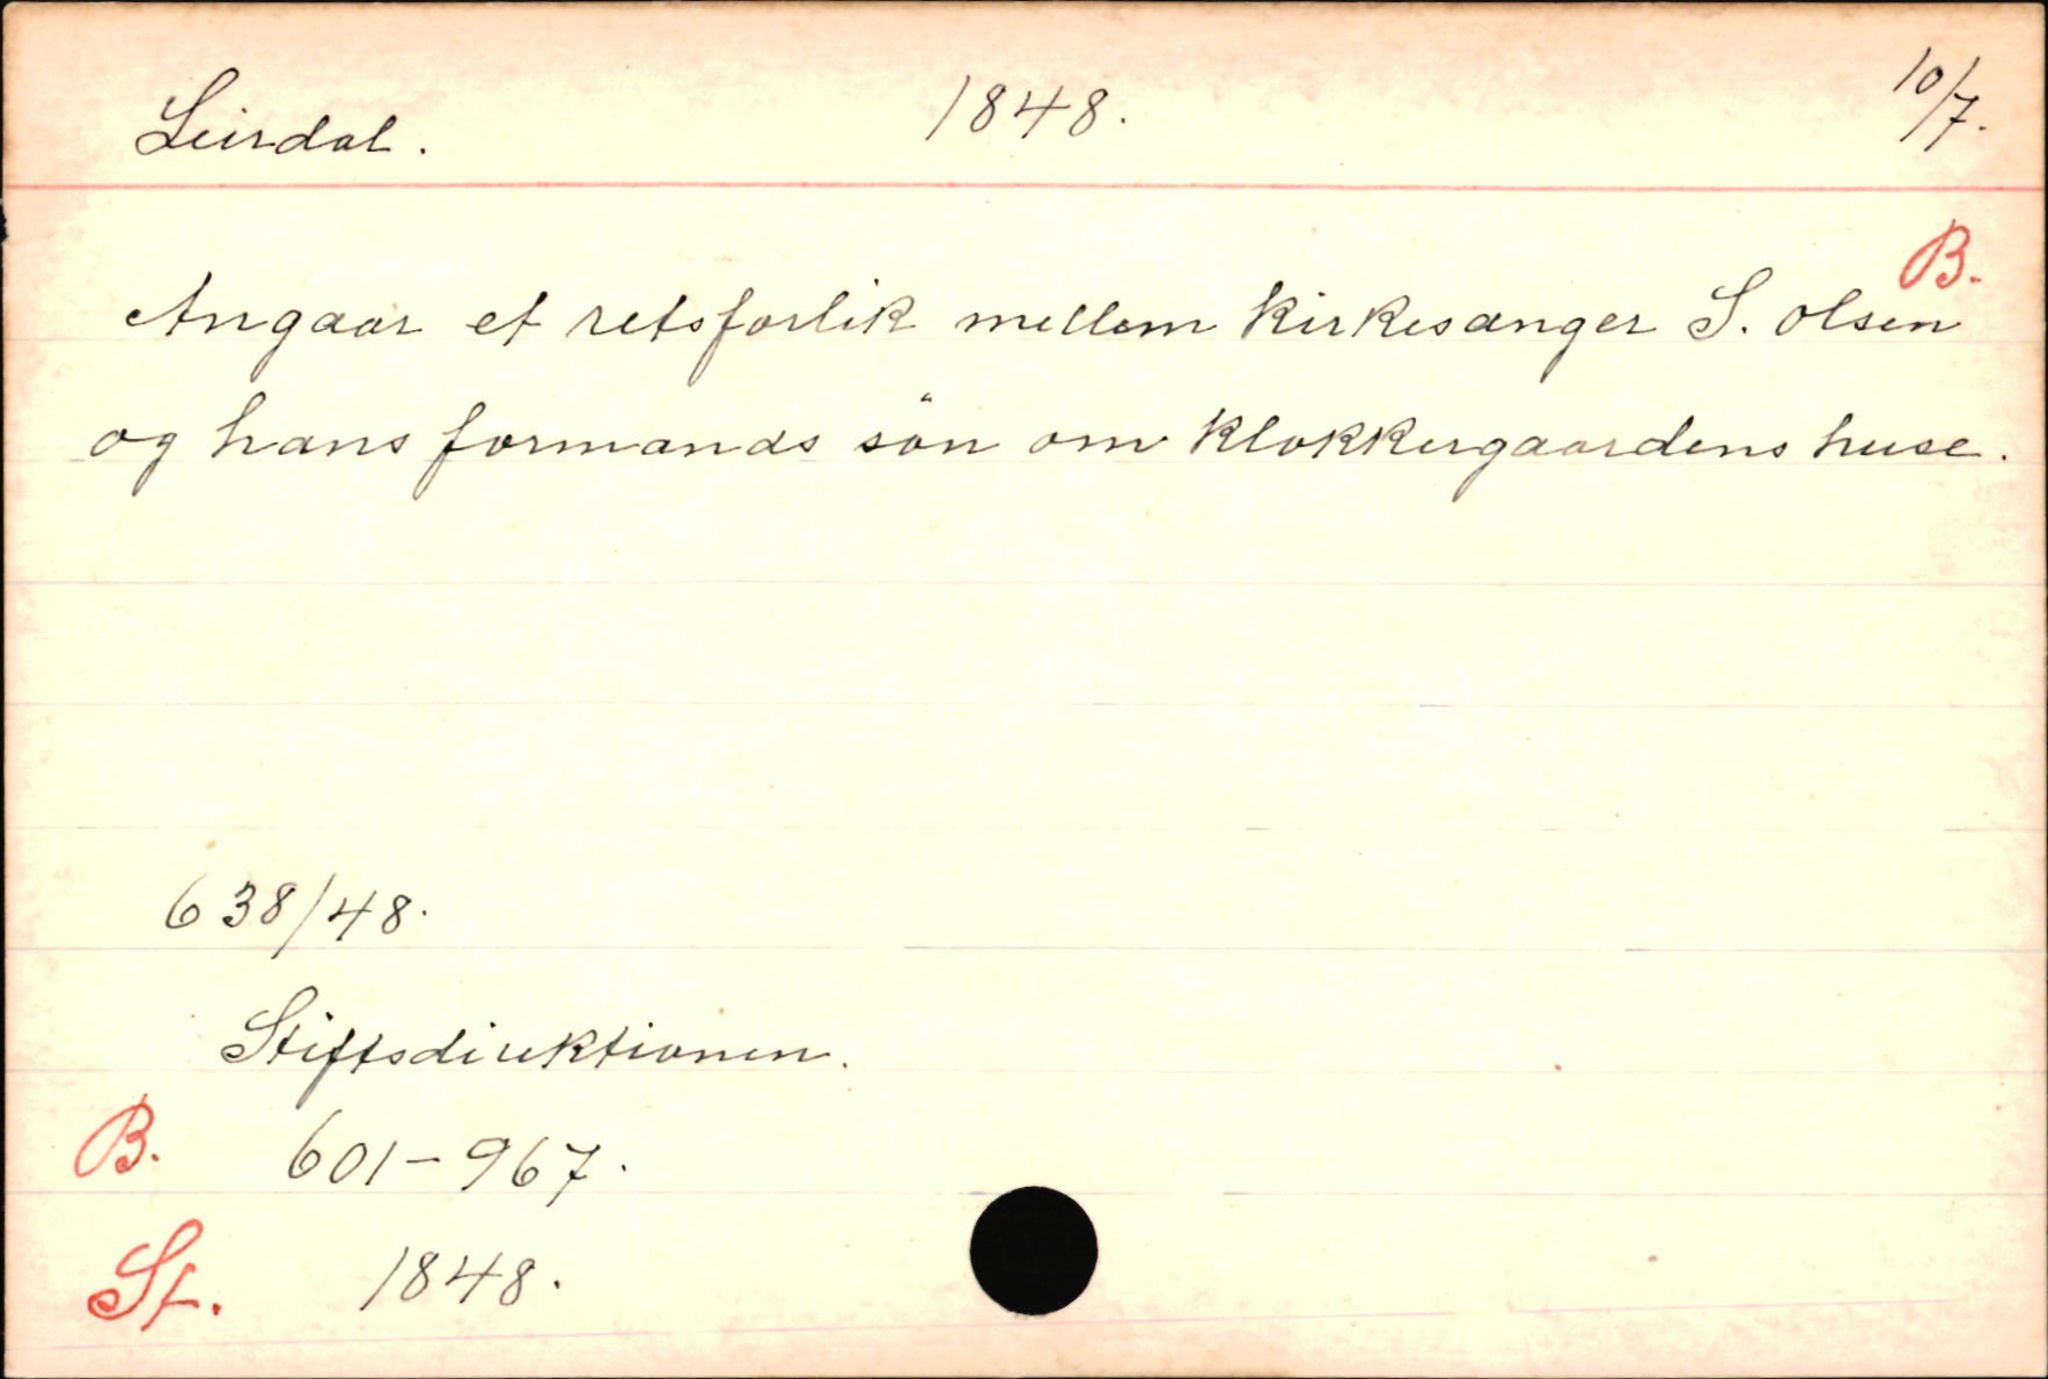 Leirdal. 1848. 10/7.
B.
Angaar et retsforlik mellem kirkesanger S. Olsen
og hans formands sön om klokkergaardens huse.
638/48.
Stiftsdirektionen.
B. 601-967.
St. 1848.